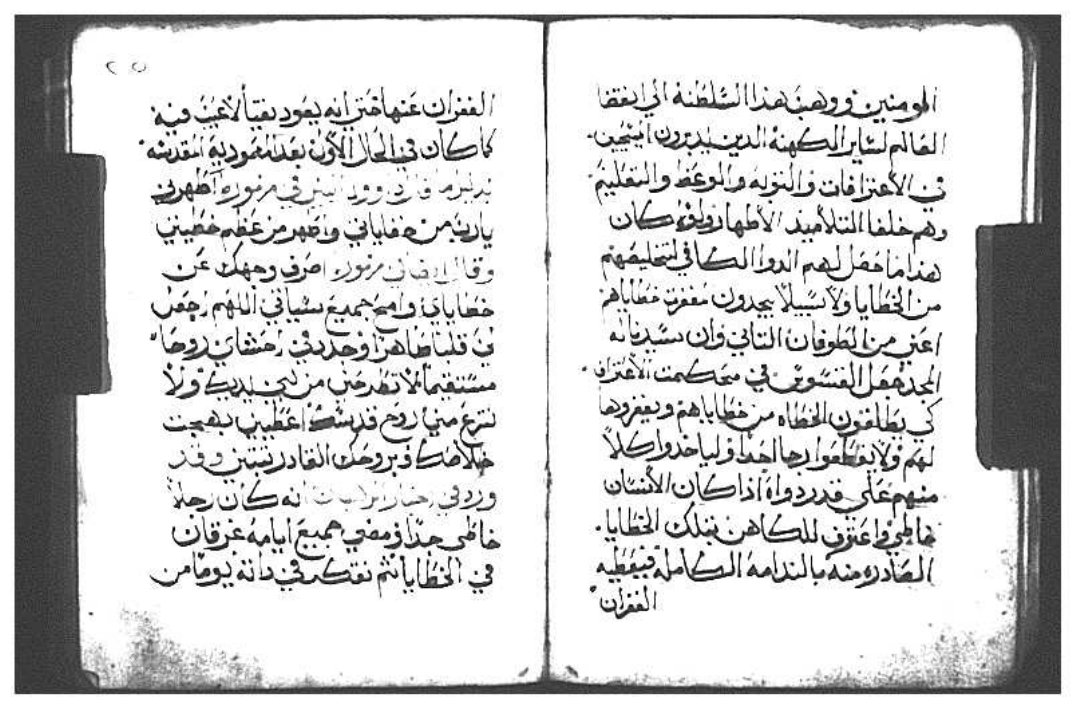 المومنين ووهب هدا السلطنه الي انقضا
العالم لساير الكهنه الدين يدبرون المسيحيين
في الاعترافات والتوبه والوعظ والتعليم
وهم خلفا التلاميد الاطهار ولو كان
هدا ما جعل لهم الدوا الكافي لتخليصهم
من الخطايا ولا سبيلا يجدون مغفرت خطاياهم
اعني من الطوفان التاني وان سيدنا له
المجد جعل القسوس في محكمت الاعتراف
كي يطلقون الخطاه من خطاياهم ويغفروها
لهم ولا يقطعوا رجا احدا وليا خدوا كلا
منهم علي قدر دواه ادا كان الانسان
خاطي واعترف للكاهن بتلك الخطايا
الصادره منه بالندامه الكامله فيعطيه
الغفران
٢٥
الغفران عنها حتي انه يعود نقيا لا عيب فيه
كما كان في الحال الاول بعد المعموديه المقدسه
في مزموره اطهرني
يارب من خطاياتي واطهر من عظم خطيتي
وقال ايضا في مزموره اصرف وجهك عن
خطاياي وامح جميع سياتي اللهم اجعل
في قلبا طاهرا وجدد في احشاي روحا
مستقيما لا تطرحني من بين يديك ولا
تنزع مني روح قدسك اعطيني بهجت
خلاصك وبروحك القادر تبتني وقد
ورد في اخبار انه كان رجلا
خاطي جدا ومضي جميع ايامه غرقان
في الخطايا تم تفكر في داته يوما من